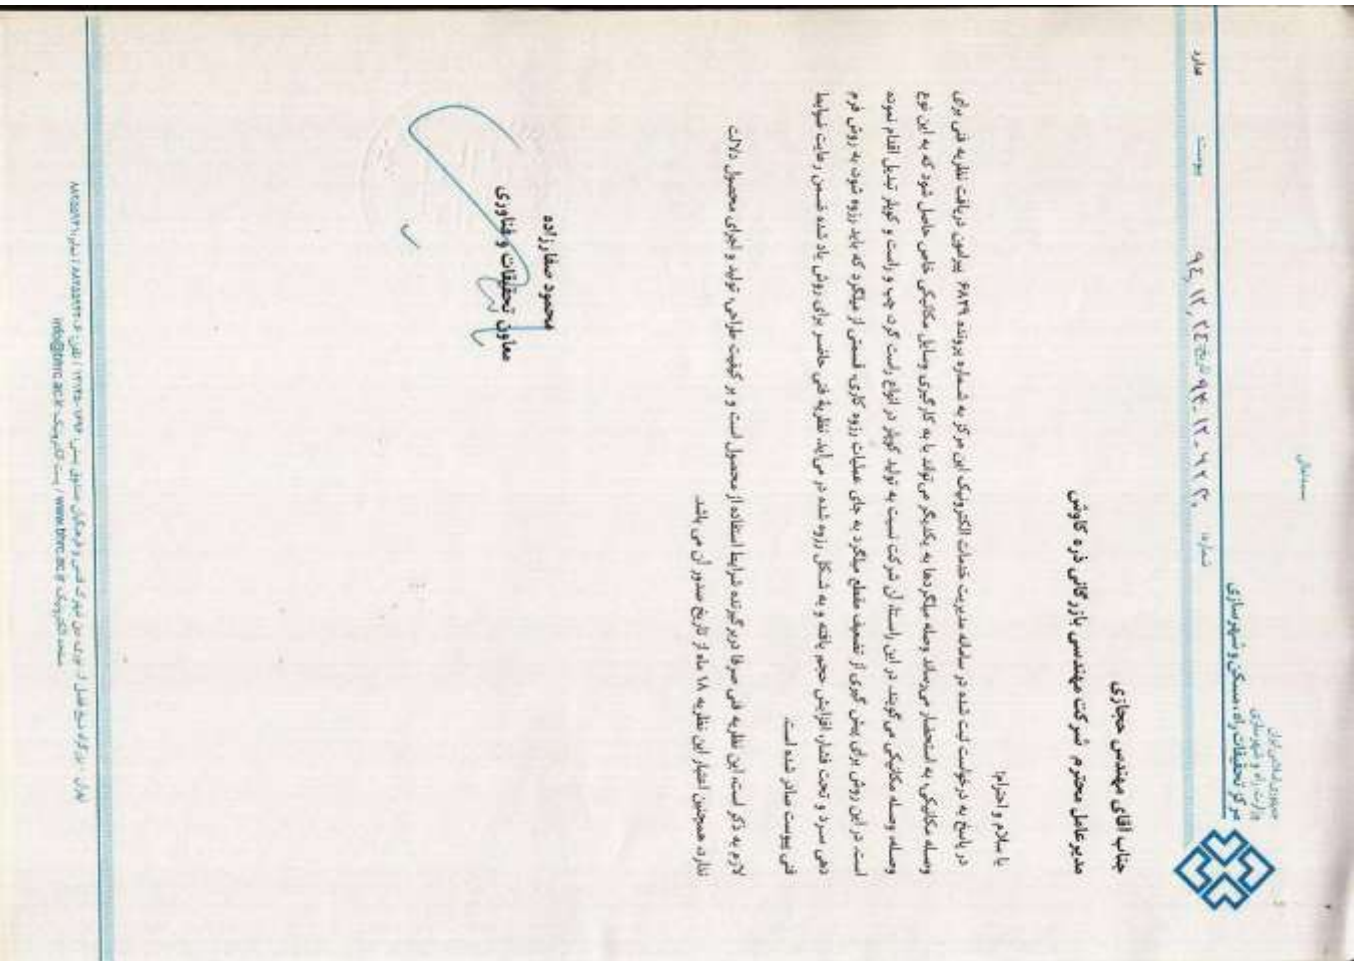 بسمه‌تعالی
جمهوری اسلامی ایران
وزارت راه و شهرسازی
مرکز تحقیقات راه، مسکن و شهرسازی
شماره:
تاریخ:
پیوست
ندارد
جناب آقای مهندس حجازی
مدیرعامل محترم شرکت مهندسی بازرگانی ذره کاوش
با سلام و احترام؛
در پاسخ به درخواست ثبت شده در سامانه مدیریت خدمات الکترونیک این مرکز به شماره پرونده ۶۸۲۹ پیرامون دریافت نظریه فنی برای
وصله مکانیکی، به استحضار می‌رساند وصله میلگردها به یکدیگر می تواند با به کارگیری وسایل مکانیکی خاص حاصل شود که به این نوع
وصله، وصله مکانیکی می گویند. در این راستا، آن شرکت نسبت به تولید کوپلر در انواع راست گرد، چپ و راست و کوپلر تبدیل اقدام نموده
است. در این روش برای پیش گیری از تضعیف مقطع میلگرد به جای عملیات رزوه کاری، قسمتی از میلگرد که باید رزوه شود، به روش فرم
دهی سرد و تحت فشار، افزایش حجم یافته و به شکل رزوه شده در می‌آید. نظریة فنی حاضر برای روش یاد شده ضمن رعایت ضوابط
فنی پیوست صادر شده است.
لازم به ذکر است، این نظریه فنی صرفا دربرگیرنده شرایط استفاده از محصول است و بر کیفیت طراحی، تولید و اجرای محصول دلالت
ندارد. همچنین اعتبار این نظریه ۱۸ ماه از تاریخ صدور آن می باشد.
محمود صفارزاده
معاون تحقیقات و فناوری
www.bhrc.ac.ir
info@bhrc.ac.ir